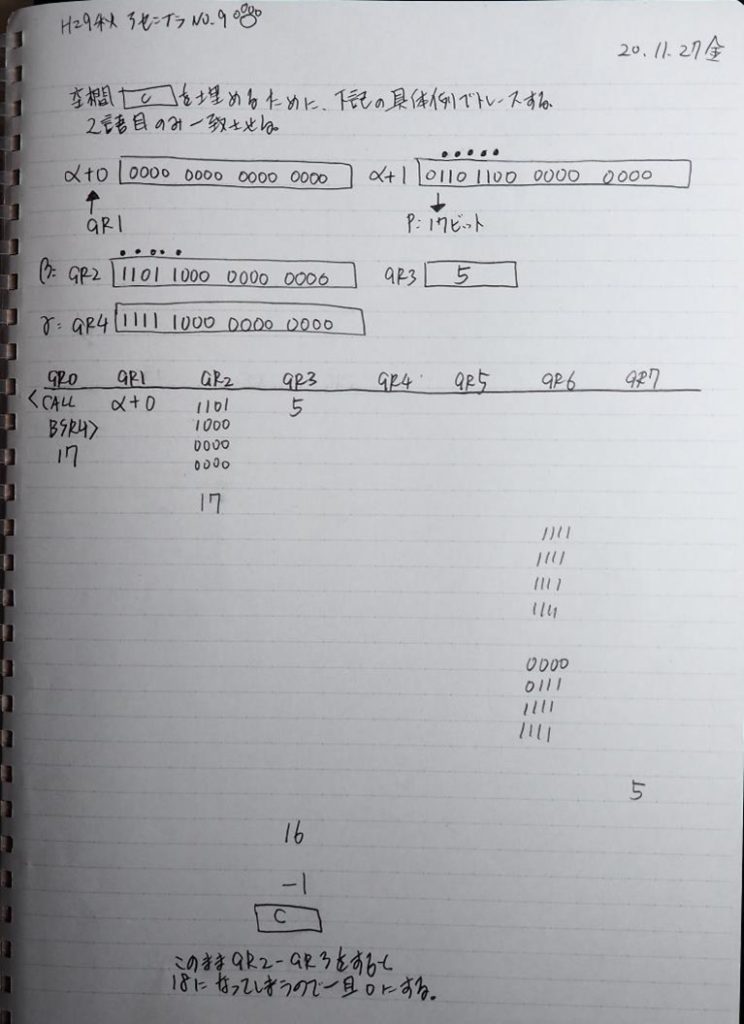 H29秋 アセンブラ NO.9
20.11.27金
空欄 C を埋めるために、下記の具体例でトレースする。
2語目のみ一致させる。
α+0 0000 0000 0000 0000 α+1 0110 1100 0000 0000
GR1 P:17ビット
β: GR2 1101 1000 0000 0000 GR3 5
γ: GR4 1111 1000 0000 0000
GR0 GR1 GR2 GR3 GR4 GR5 GR6 GR7
<CALL α+0 1101 5
BSR4> 1000
17 0000
0000
17
1111
1111
1111
1111
0000
0111
1111
1111
5
16
-1
C
このままGR2-GR3をすると
18になってしまうので一旦0にする。